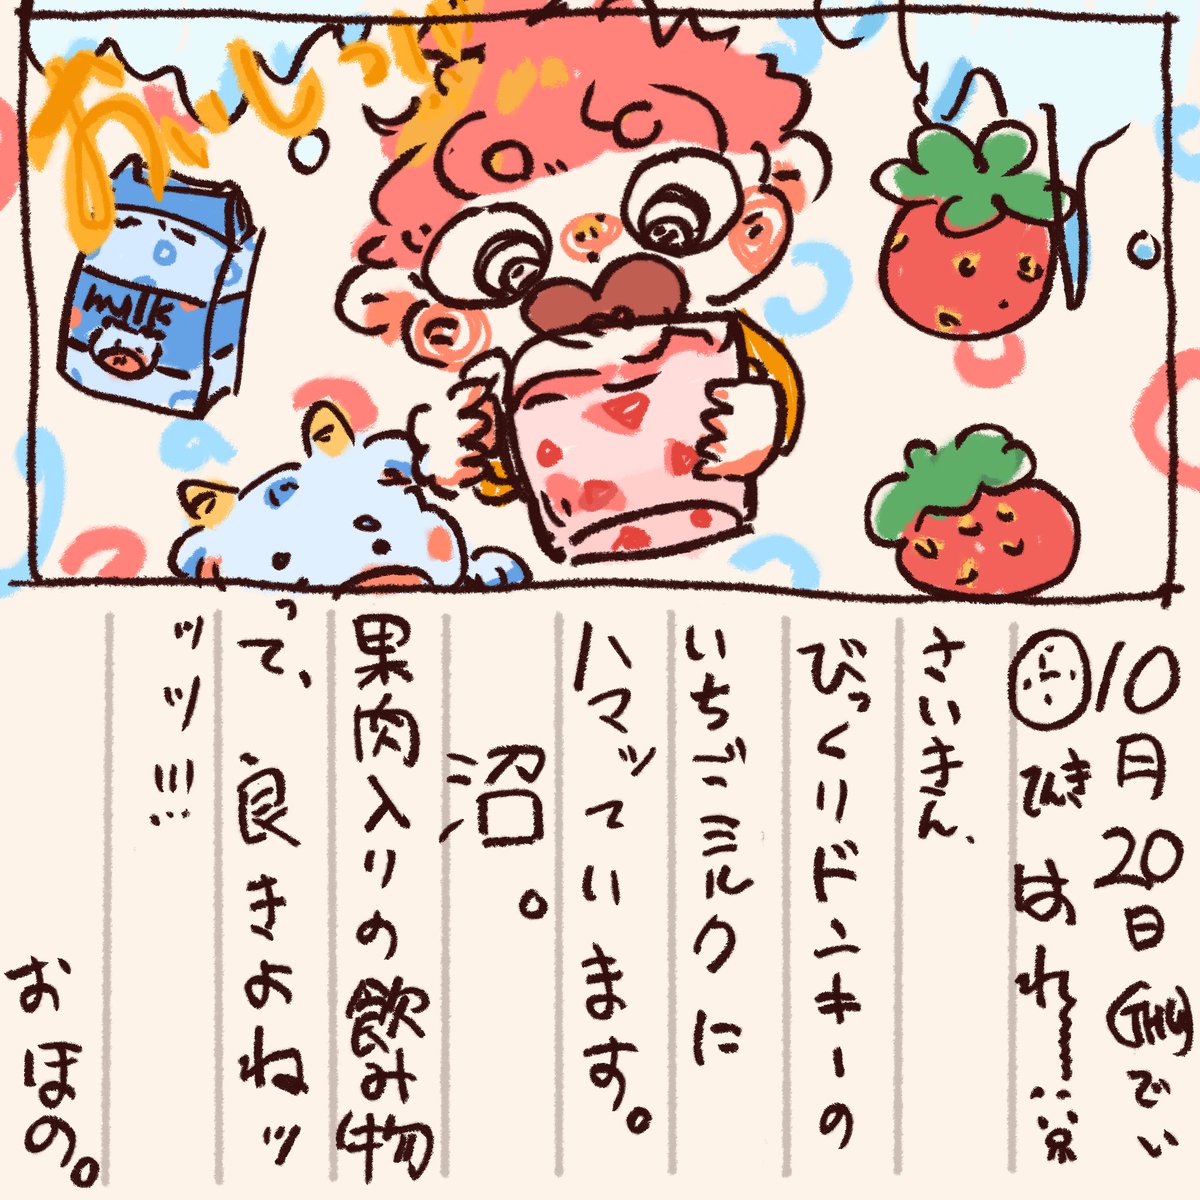 おいしっ
milk
10月20日(THU)でい
てんき はれー
さいきん、
びっくりドンキーの
いちごミルクに
ハマっています。
沼。
果肉入りの飲み物
って、良きよねッ
ッッ!!!
おほの。